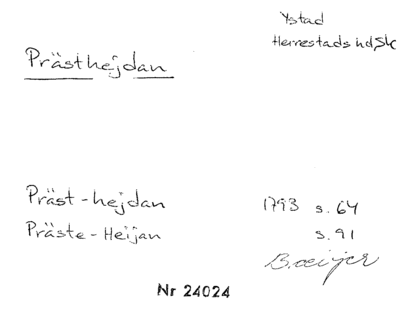 Ystad
Herrestads hd, Sk
Prästhejdan
Präst-hejdan 1793 s. 64
Präste-Heijan s. 91
Nr 24024